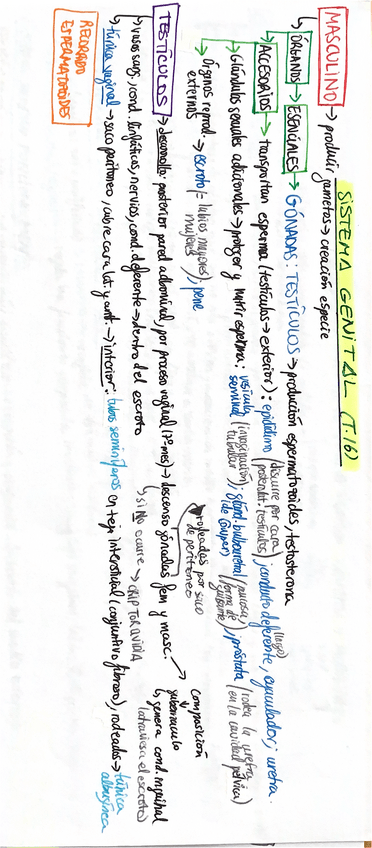 SISTEMA GENITAL (T.16)
MASCULINO → producir gametos → creación especie
ÓRGANOS → ESENCIALES → GÓNADAS: TESTÍCULOS → producción espermatozoides, testosterona
ACCESORIOS → transportan esperma (testículos → exterior): epidídimo (discurre por cara posterolat. testículos); conducto deferente, (largo) eyaculador; uretra.
Glándulas sexuales adicionales → proteger y nutrir esperma: vesícula seminal (invaginación tubular); gland. bulbouretral de Cowper (mucosa, forma de guisante); próstata (rodea la uretra en la cavidad pélvica)
Órganos reprod. externos → escroto (= labios mayores mujeres); pene
TESTÍCULOS → desarrollo: posterior pared abdominal, por proceso vaginal (7º mes) → descenso gónadas fem y masc.
rodeadas por saco de peritoneo
composición gubernáculo
↳ genera cond. inguinal (atraviesa el escroto)
↳ si NO ocurre → CRIPTORQUIDIA
↳ vasos sang., cond. linfáticos, nervios, cond. deferente → dentro del escroto
↳ túnica vaginal → saco peritoneo, cubre cara lat. y ant. → interior: tubos seminíferos en tejido intersticial (conjuntivo fibroso), rodeados → túnica albugínea
RECORRIDO ESPERMATOZOIDES